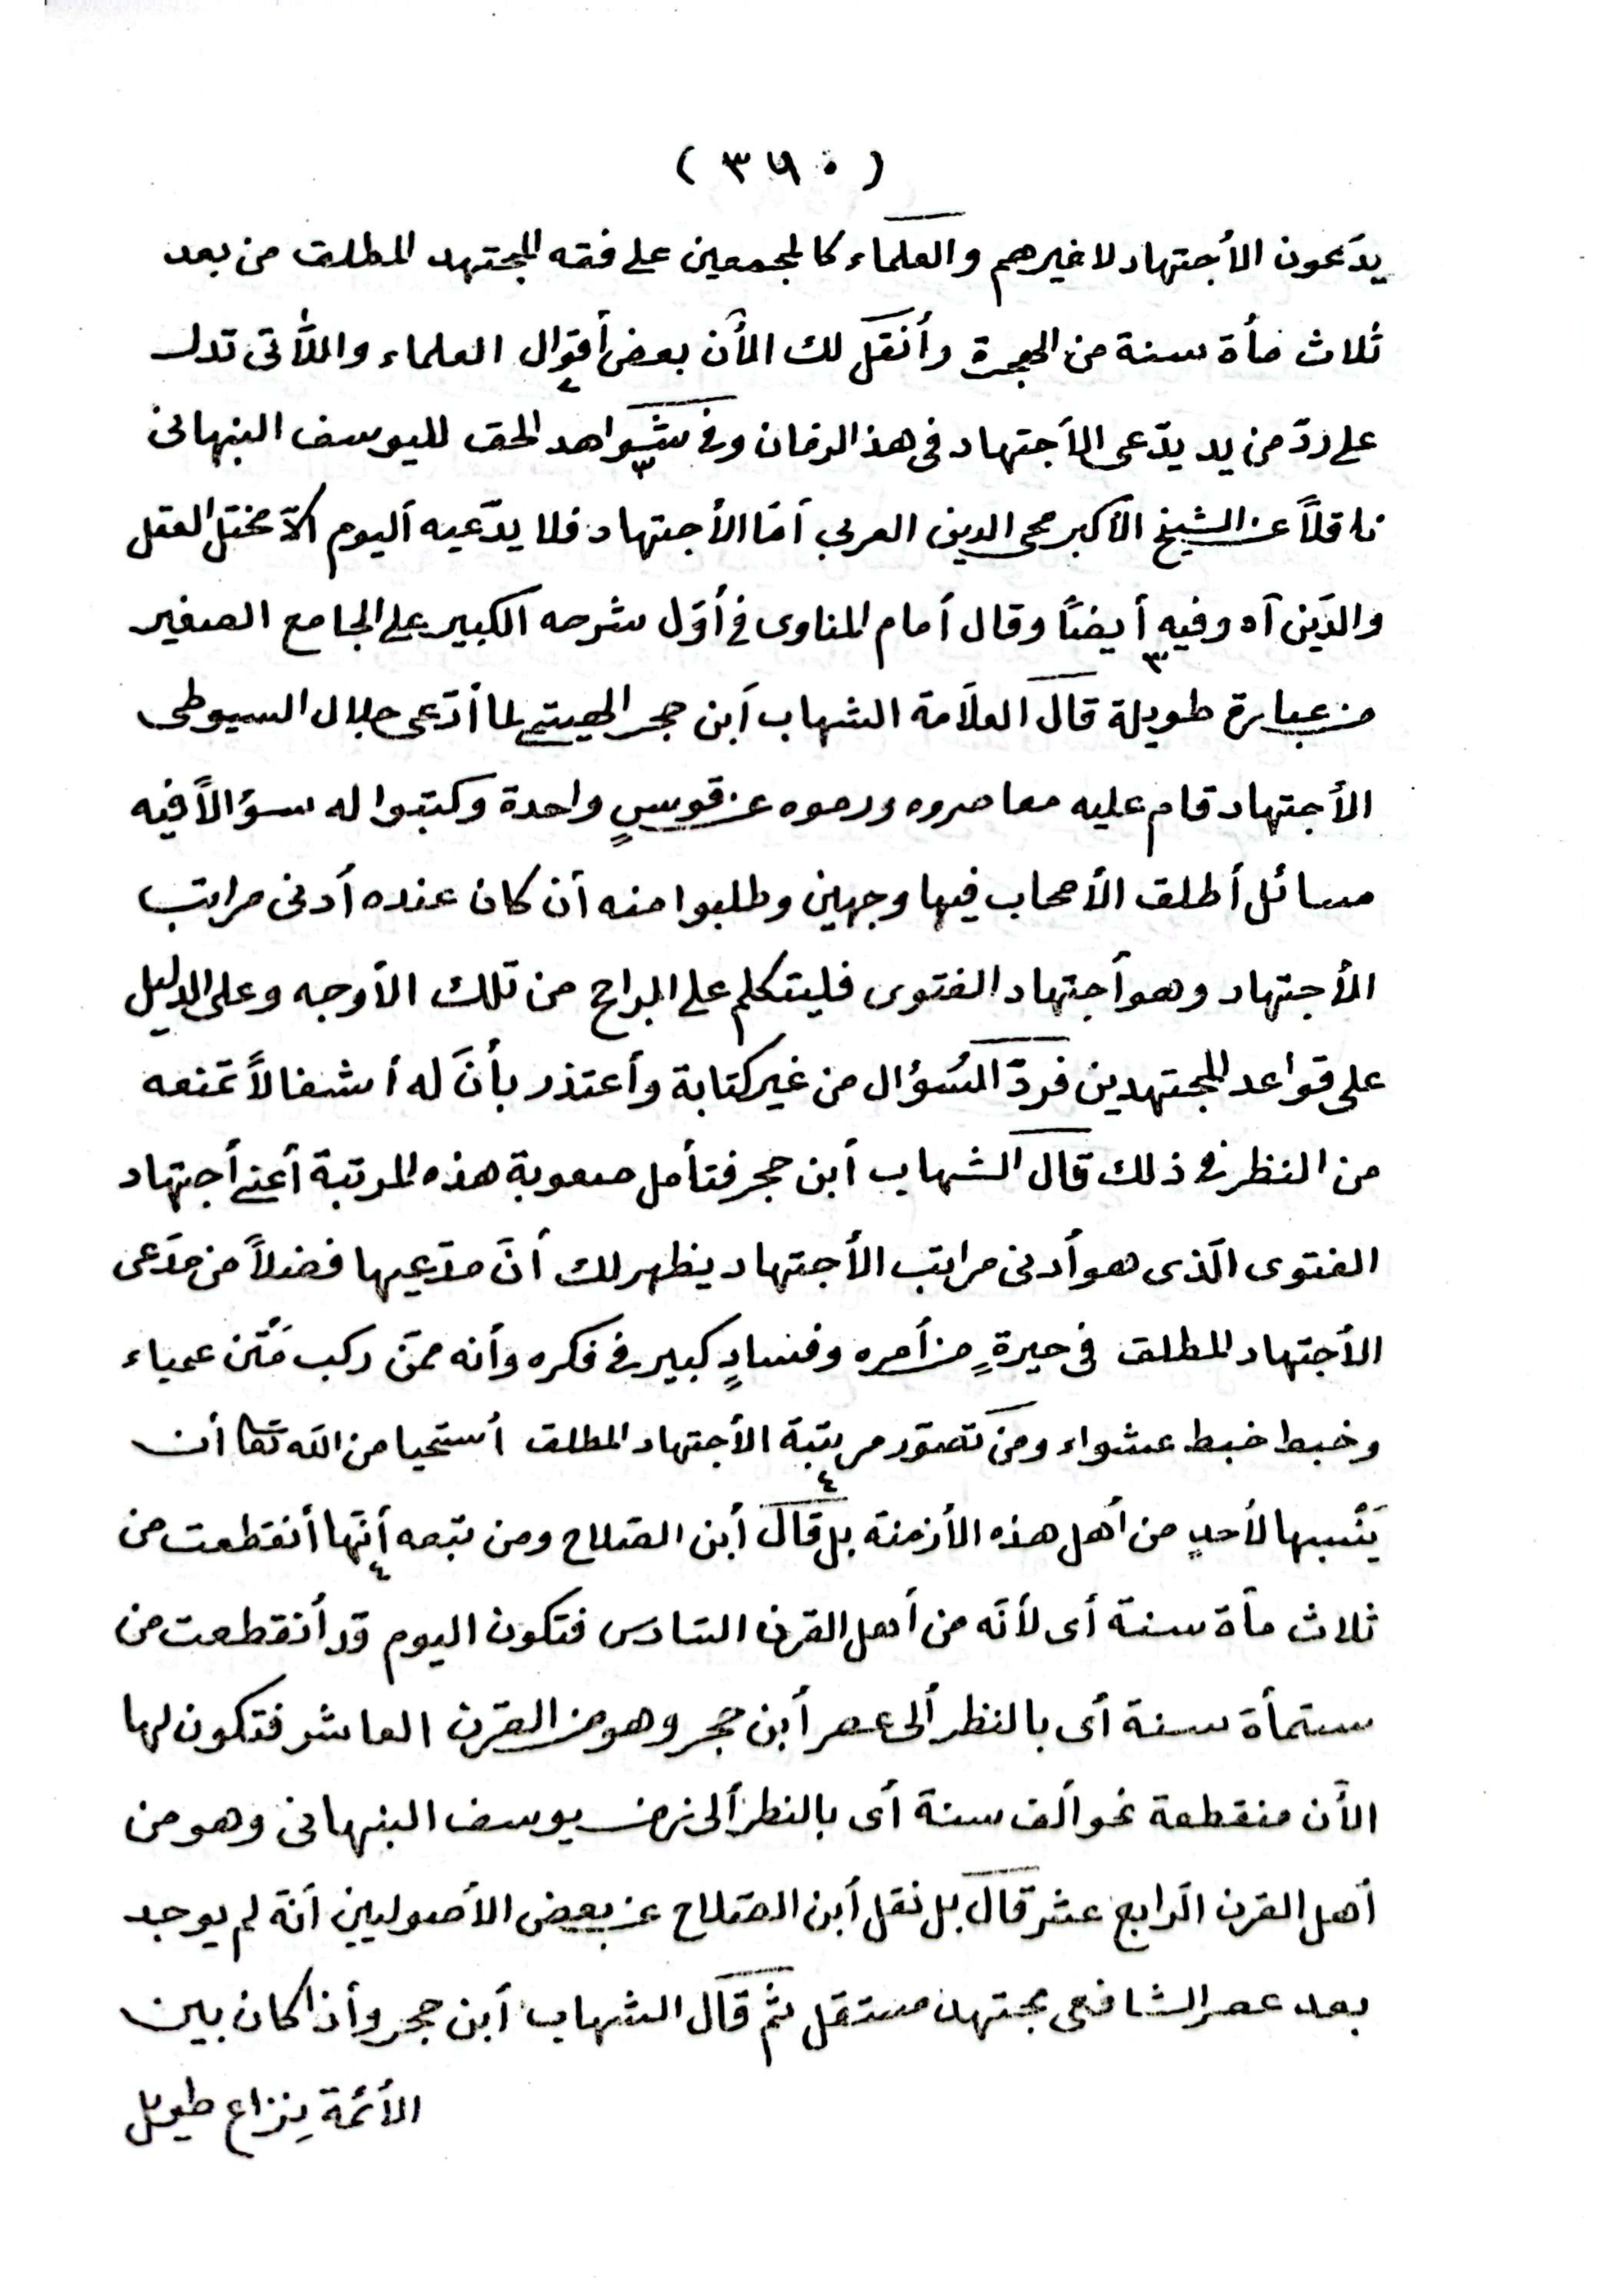 ( ٣٦٠ )
يدّعون الأجتهاد لا غيرهم والعلماء كالمجمعين على فقه المجتهد المطلق من بعد
ثلاث مأة سنة من الهجرة وأنقل لك الأن بعض أقوال العلماء واللّأتى تدل
على ردّ من يد يدّعى الأجتهاد فى هذ الزمان وفى شواهد الحق لليوسف النبهانى
ناقلاً عن الشيخ الأكبر محى الدين العربي أمّا الأجتهاد فلا يدّعيه أليوم الّا مختل العقل
والدّين آه وفيه أيضاً وقال أمام المناوى فى أوّل شرحه الكبير على الجامع الصغير
من عبارة طويلة قال العلاّمة الشهاب أبن حجر الهيتمى لما أدّعى جلال السيوطى
الأجتهاد قام عليه معاصروه ورموه عن قوسٍ واحدة وكتبوا له سؤالاً فيه
مسائل أطلق الأصحاب فيها وجهين وطلبوا منه أن كان عنده أدنى مراتب
الأجتهاد وهو أجتهاد الفتوى فليتكلم على الراجح من تلك الأوجه وعلى الدليل
على قواعد المجتهدين فردّ السُؤال من غير كتابة وأعتذر بأنَ له أشغالاً تمنعه
من النظر فى ذلك قال الشهاب أبن حجر فتأمل صعوبة هذه المرتبة أعنى أجتهاد
الفتوى الّذى هو أدنى مراتب الأجتهاد يظهر لك أنّ مدّعيها فضلاً من مدّعى
الأجتهاد المطلق فى حيرةٍ من أمره وفسادٍ كبير فى فكره وأنه ممّن ركب مَتْن عمياء
وخبط خبط عشواء ومن تصوّر مرتبة الأجتهاد المطلق أستحيا من الله تعا أن
يَنْسبها لأحدٍ من أهل هذه الأزمنة بل قال أبن الصّلاح ومن تبعه أنّها أنقطعت من
ثلاث مأة سنة أى لأنّه من أهل القرن السّادس فتكون اليوم قد أنقطعت من
ستمأة سنة أى بالنظر ألى عصر أبن حجر وهو من القرن العاشر فتكون لها
الأن منقطعة نحو ألف سنة أى بالنظر ألى زمن يوسف النبهانى وهو من
أهل القرن الرّابع عشر قال بل نقل أبن الصّلاح عن بعض الأصوليين أنّه لم يوجد
بعد عصر الشافعى مجتهد مستقل ثمّ قال الشهاب أبن حجر وأذا كان بين
الأئمة نِزاع طويل